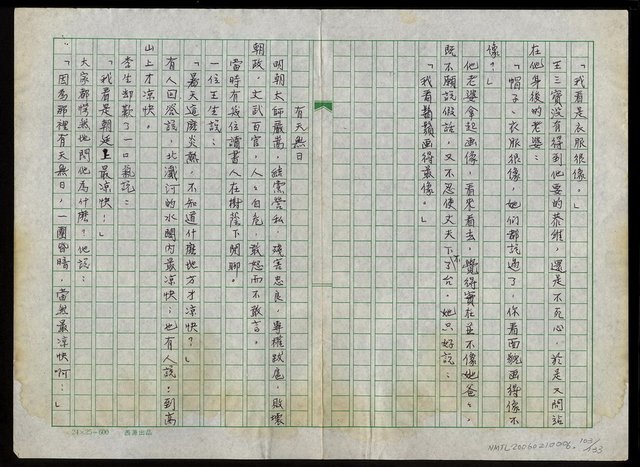 「我看是衣服很像。」
王三寶沒有得到他要的恭維，還是不死心，於是又問站
在他身後的老婆：
「帽子、衣服很像，她們都說過了，你看面貌画得像不
像？」
他老婆拿起画像，看來看去，覺得實在並不像她爸々，
既不願說假話，又不忍使丈夫下不了台，她只好說：
「我看鬍鬚画得最像。」
有天無日
明朝太師嚴嵩，結黨營私，殘害忠良，專權跋扈，敗壞
朝政，文武百官，人々自危，敢怒而不敢言。
當時有幾位讀書人在樹蔭下閒聊。
一位王生說：
「夏天這麼炎熱，不知道什麼地方才凉快？」
有人回答說，北瀛河的水閣內最凉快；也有人說，到高
山上才凉快。
李生却歎了一口氣說：
「我看是朝廷上最凉快！」
大家都愕然地問他為什麼？他說：
「因為那裡有天無日，一團昏暗，當然最凉快啊！」
24×25=600 西源出品
NMTL20060210096. 103/133